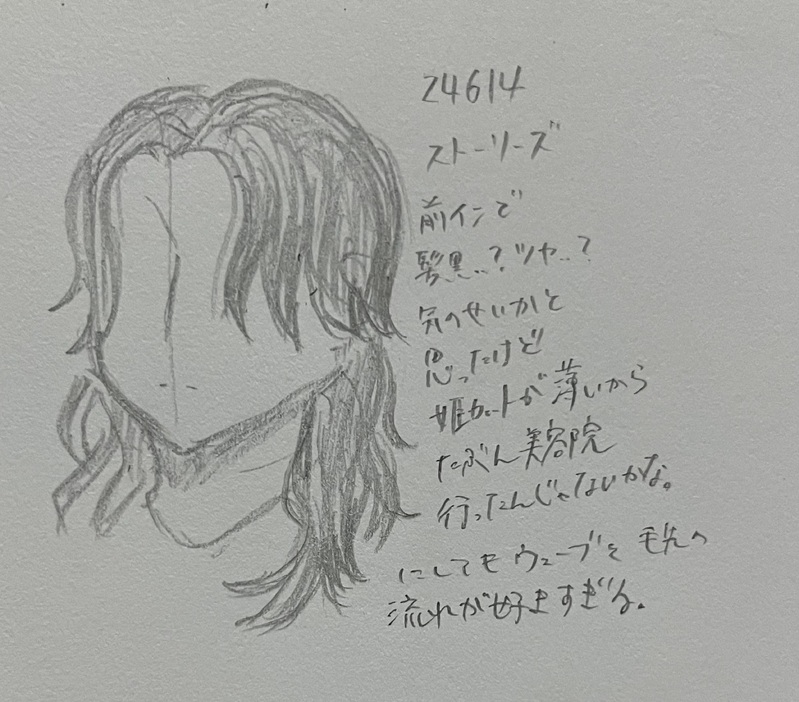 24614
ストーリーズ
前インで
髪黒..？ツヤ..？
気のせいかと
思ったけど
姫カットが薄いから
たぶん美容院
行ったんじゃないかな。
にしてもウェーブと毛先の
流れが好きすぎる。